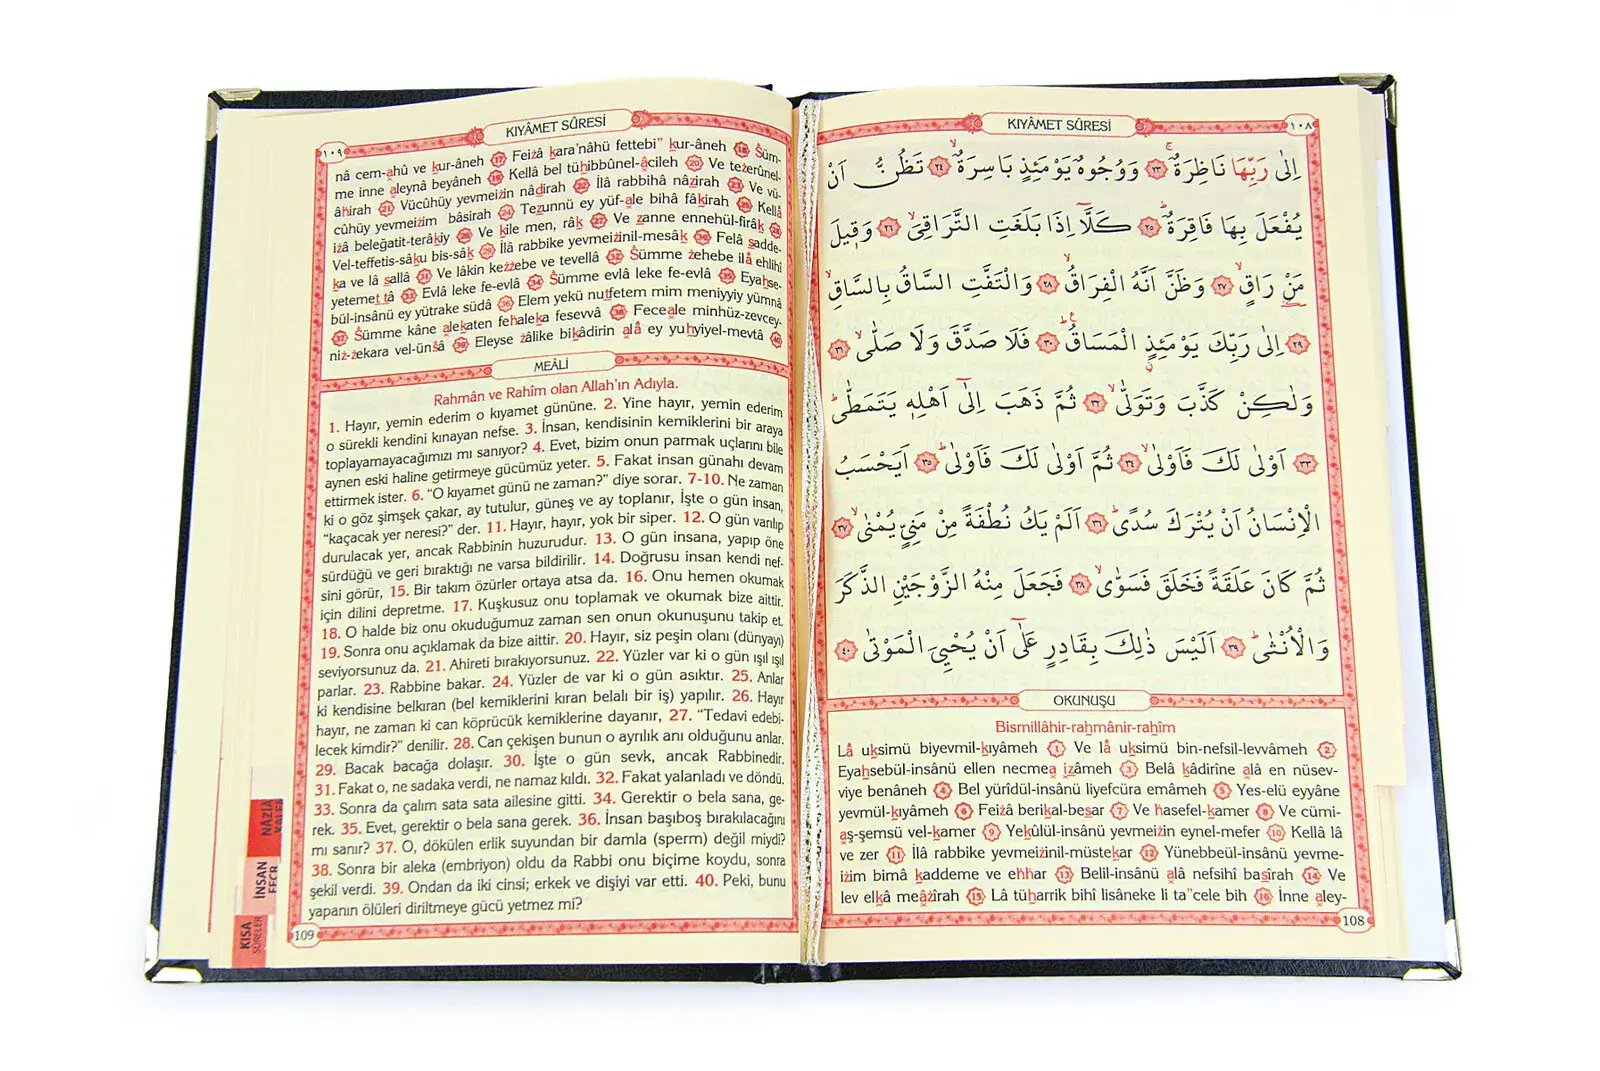 KIYÂMET SÛRESİ
١٠٨
اِلٰى رَبِّهَا نَاظِرَةٌۚ ٢٣ وَوُجُوهٌ يَوْمَئِذٍ بَاسِرَةٌۙ ٢٤ تَظُنُّ اَنْ
يُفْعَلَ بِهَا فَاقِرَةٌۜ ٢٥ كَلَّٓا اِذَا بَلَغَتِ التَّرَاقِيَۙ ٢٦ وَق۪يلَ
مَنْ رَاقٍۙ ٢٧ وَظَنَّ اَنَّهُ الْفِرَاقُۙ ٢٨ وَالْتَفَّتِ السَّاقُ بِالسَّاقِۙ
٢٩ اِلٰى رَبِّكَ يَوْمَئِذٍ الْمَسَاقُۜ ٣٠ فَلَا صَدَّقَ وَلَا صَلّٰىۙ ٣١
وَلٰكِنْ كَذَّبَ وَتَوَلّٰىۙ ٣٢ ثُمَّ ذَهَبَ اِلٰٓى اَهْلِه۪ يَتَمَطّٰىۜ
٣٣ اَوْلٰى لَكَ فَاَوْلٰىۙ ٣٤ ثُمَّ اَوْلٰى لَكَ فَاَوْلٰىۜ ٣٥ اَيَحْسَبُ
الْاِنْسَانُ اَنْ يُتْرَكَ سُدًىۜ ٣٦ اَلَمْ يَكُ نُطْفَةً مِنْ مَنِيٍّ يُمْنٰىۙ ٣٧
ثُمَّ كَانَ عَلَقَةً فَخَلَقَ فَسَوّٰىۙ ٣٨ فَجَعَلَ مِنْهُ الزَّوْجَيْنِ الذَّكَرَ
وَالْاُنْثٰىۜ ٣٩ اَلَيْسَ ذٰلِكَ بِقَادِرٍ عَلٰٓى اَنْ يُحْيِيَ الْمَوْتٰى ٤٠
OKUNUŞU
Bismillâhir-rahmânir-rahîm
Lâ uksimü biyevmil-kıyâmeh 1 Ve lâ uksimü bin-nefsil-levvâmeh 2
Eyahsebül-insânü ellen necmea izâmeh 3 Belâ kâdirîne alâ en nüsev-
viye benâneh 4 Bel yürîdül-insânü liyefcüra emâmeh 5 Yes-elü eyyâne
yevmül-kıyâmeh 6 Feizâ berikal-besar 7 Ve hasefel-kamer 8 Ve cümi-
aş-şemsü vel-kamer 9 Yekûlül-insânü yevmeizin eynel-mefer 10 Kellâ lâ
ve zer 11 İlâ rabbike yevmeizinil-müstekar 12 Yünebbeül-insânü yevme-
izim bimâ kaddeme ve ehhar 13 Belil-insânü alâ nefsihî basîrah 14 Ve
lev elkâ meâzîrah 15 Lâ tüharrik bihî lisâneke li ta"cele bih 16 İnne aley-
108
KIYÂMET SÛRESİ
١٠٩
nâ cem-ahû ve kur-âneh 17 Feizâ kara'nâhü fettebi" kur-âneh 18 Süm-
me inne aleynâ beyâneh 19 Kellâ bel tühibbûnel-âcileh 20 Ve tezerûnel-
âhirah 21 Vücûhüy yevmeizin nâdirah 22 İlâ rabbihâ nâzirah 23 Ve vü-
cûhüy yevmeizim bâsirah 24 Tezunnü ey yüf-ale bihâ fâkirah 25 Kellâ
izâ beleğatit-terâkiy 26 Ve kile men, râk 27 Ve zanne ennehül-firâk 28
Vel-teffetis-sâku bis-sâk 29 İlâ rabbike yevmeizinil-mesâk 30 Felâ sadde-
ka ve lâ sallâ 31 Ve lâkin kezzebe ve tevellâ 32 Sümme zehebe ilâ ehlihî
yetemettâ 33 Evlâ leke fe-evlâ 34 Sümme evlâ leke fe-evlâ 35 Eyahse-
bül-insânü ey yütrake südâ 36 Elem yekü nutfetem mim meniyyiy yümnâ
37 Sümme kâne alekaten fehaleka fesevvâ 38 Feceale minhüz-zevcey-
niz-zekara vel-ünsâ 39 Eleyse zâlike bikâdirin alâ ey yuhyiyel-mevtâ 40
MEÂLİ
Rahmân ve Rahîm olan Allah'ın Adıyla.
1. Hayır, yemin ederim o kıyamet gününe. 2. Yine hayır, yemin ederim
o sürekli kendini kınayan nefse. 3. İnsan, kendisinin kemiklerini bir araya
toplayamayacağımızı mı sanıyor? 4. Evet, bizim onun parmak uçlarını bile
aynen eski haline getirmeye gücümüz yeter. 5. Fakat insan günahı devam
ettirmek ister. 6. “O kıyamet günü ne zaman?” diye sorar. 7-10. Ne zaman
ki o göz şimşek çakar, ay tutulur, güneş ve ay toplanır, İşte o gün insan,
“kaçacak yer neresi?” der. 11. Hayır, hayır, yok bir siper. 12. O gün varılıp
durulacak yer, ancak Rabbinin huzurudur. 13. O gün insana, yapıp öne
sürdüğü ve geri bıraktığı ne varsa bildirilir. 14. Doğrusu insan kendi nef-
sini görür, 15. Bir takım özürler ortaya atsa da. 16. Onu hemen okumak
için dilini depretme. 17. Kuşkusuz onu toplamak ve okumak bize aittir.
18. O halde biz onu okuduğumuz zaman sen onun okunuşunu takip et.
19. Sonra onu açıklamak da bize aittir. 20. Hayır, siz peşin olanı (dünyayı)
seviyorsunuz da. 21. Ahireti bırakıyorsunuz. 22. Yüzler var ki o gün ışıl ışıl
parlar. 23. Rabbine bakar. 24. Yüzler de var ki o gün asıktır. 25. Anlar
ki kendisine belkıran (bel kemiklerini kıran belalı bir iş) yapılır. 26. Hayır
hayır, ne zaman ki can köprücük kemiklerine dayanır, 27. “Tedavi edebi-
lecek kimdir?” denilir. 28. Can çekişen bunun o ayrılık anı olduğunu anlar.
29. Bacak bacağa dolaşır. 30. İşte o gün sevk, ancak Rabbinedir.
31. Fakat o, ne sadaka verdi, ne namaz kıldı. 32. Fakat yalanladı ve döndü.
33. Sonra da çalım sata sata ailesine gitti. 34. Gerektir o bela sana, ge-
rek. 35. Evet, gerektir o bela sana gerek. 36. İnsan başıboş bırakılacağını
mı sanır? 37. O, dökülen erlik suyundan bir damla (sperm) değil miydi?
38. Sonra bir aleka (embriyon) oldu da Rabbi onu biçime koydu, sonra
şekil verdi. 39. Ondan da iki cinsi; erkek ve dişiyi var etti. 40. Peki, bunu
yapanın ölüleri diriltmeye gücü yetmez mi?
109
İNSAN
FECR
KISA
SÛRELER